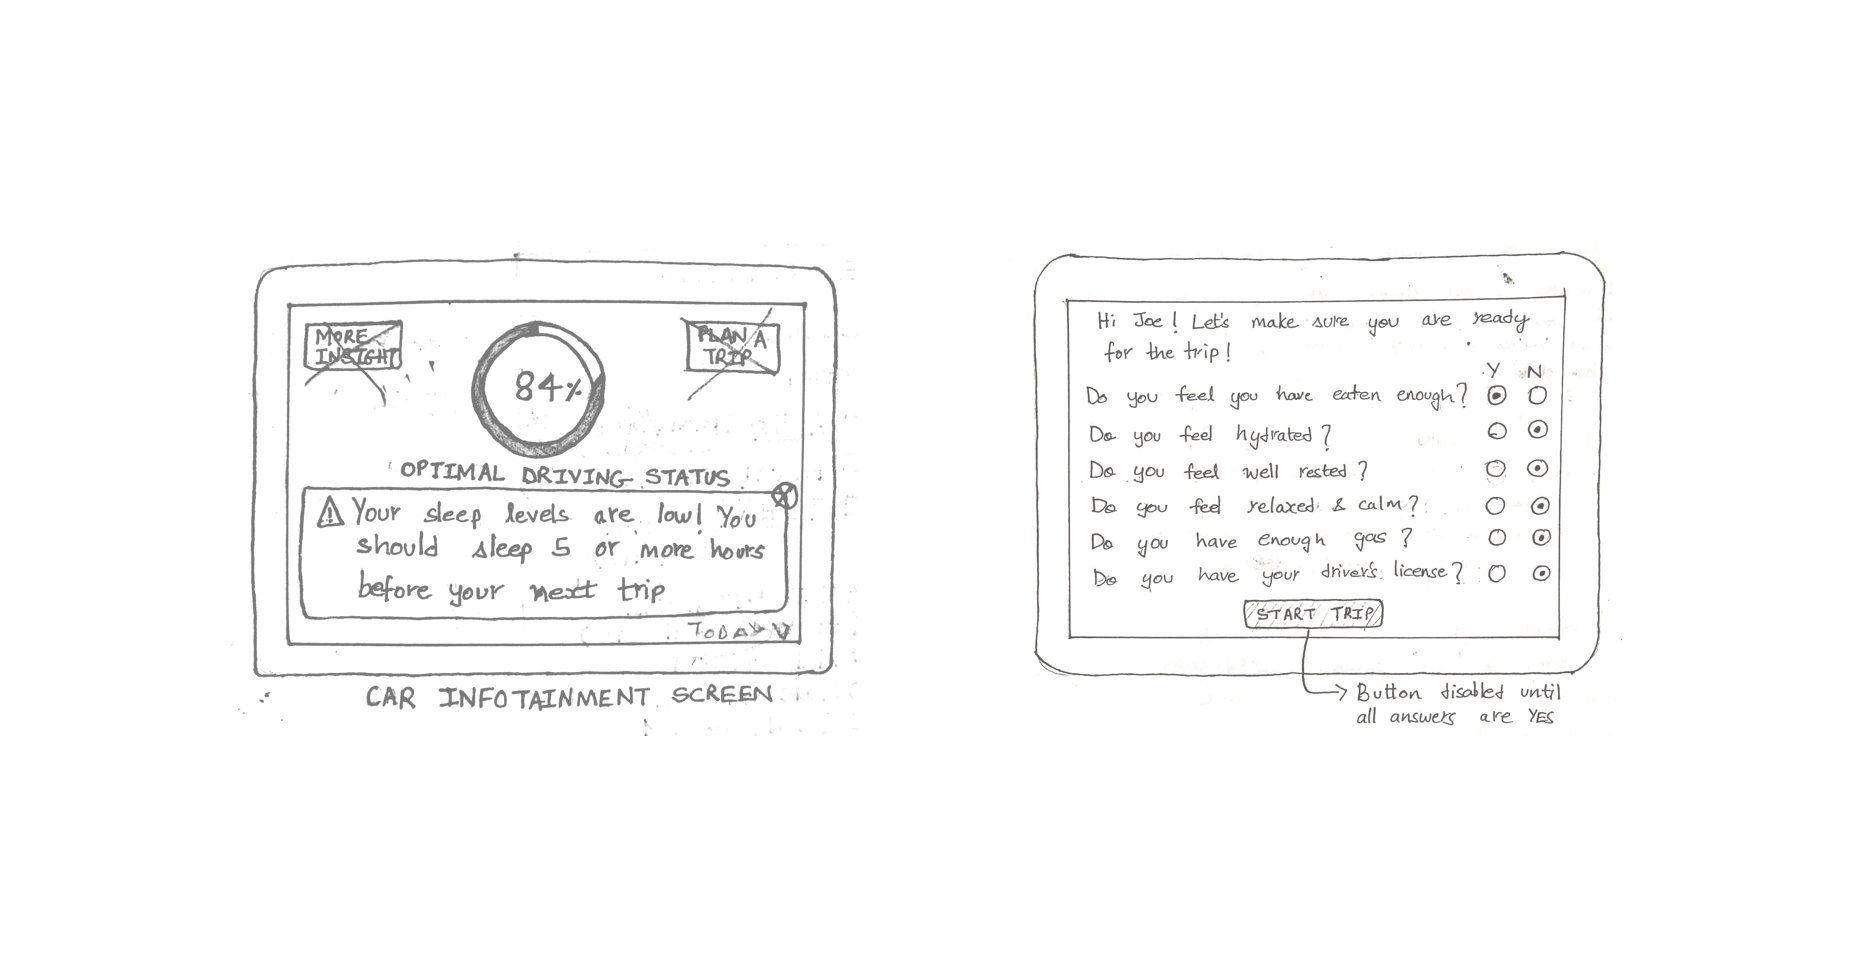 MORE
INSIGHT
84%
PLAN A
TRIP
OPTIMAL DRIVING STATUS
Your sleep levels are low! You
should sleep 5 or more hours
before your next trip
TODAY
CAR INFOTAINMENT SCREEN
Hi Joe! Let's make sure you are ready
for the trip!
Y N
Do you feel you have eaten enough?
Do you feel hydrated?
Do you feel well rested?
Do you feel relaxed & calm?
Do you have enough gas?
Do you have your driver's license?
START TRIP
Button disabled until
all answers are YES